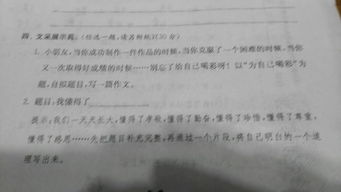 四、文采展示苑。(任选一题,读写例题)(30分)
1. 小朋友,当你成功制作一件作品的时候,当你克服了一个困难的时候,当你
又一次取得好成绩的时候……别忘了给自己喝彩呀!以“为自己喝彩”为
题,自拟题目,写一篇作文。
2. 题目:我懂得了
提示:我们一天天长大,懂得了孝敬,懂得了勤奋,懂得了珍惜,懂得了尊重,
懂得了感恩……先把题目补充完整,再通过一个片段,将自己明白的一个道
理写出来。